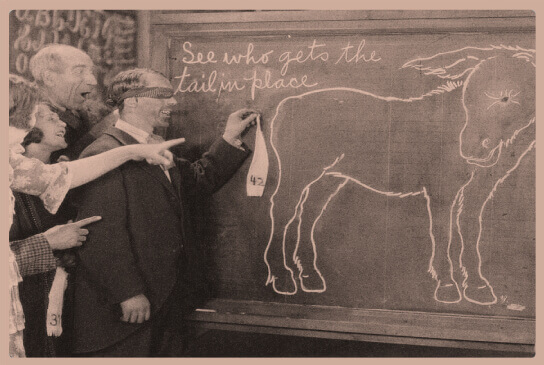 See who gets the
tail in place
42
3